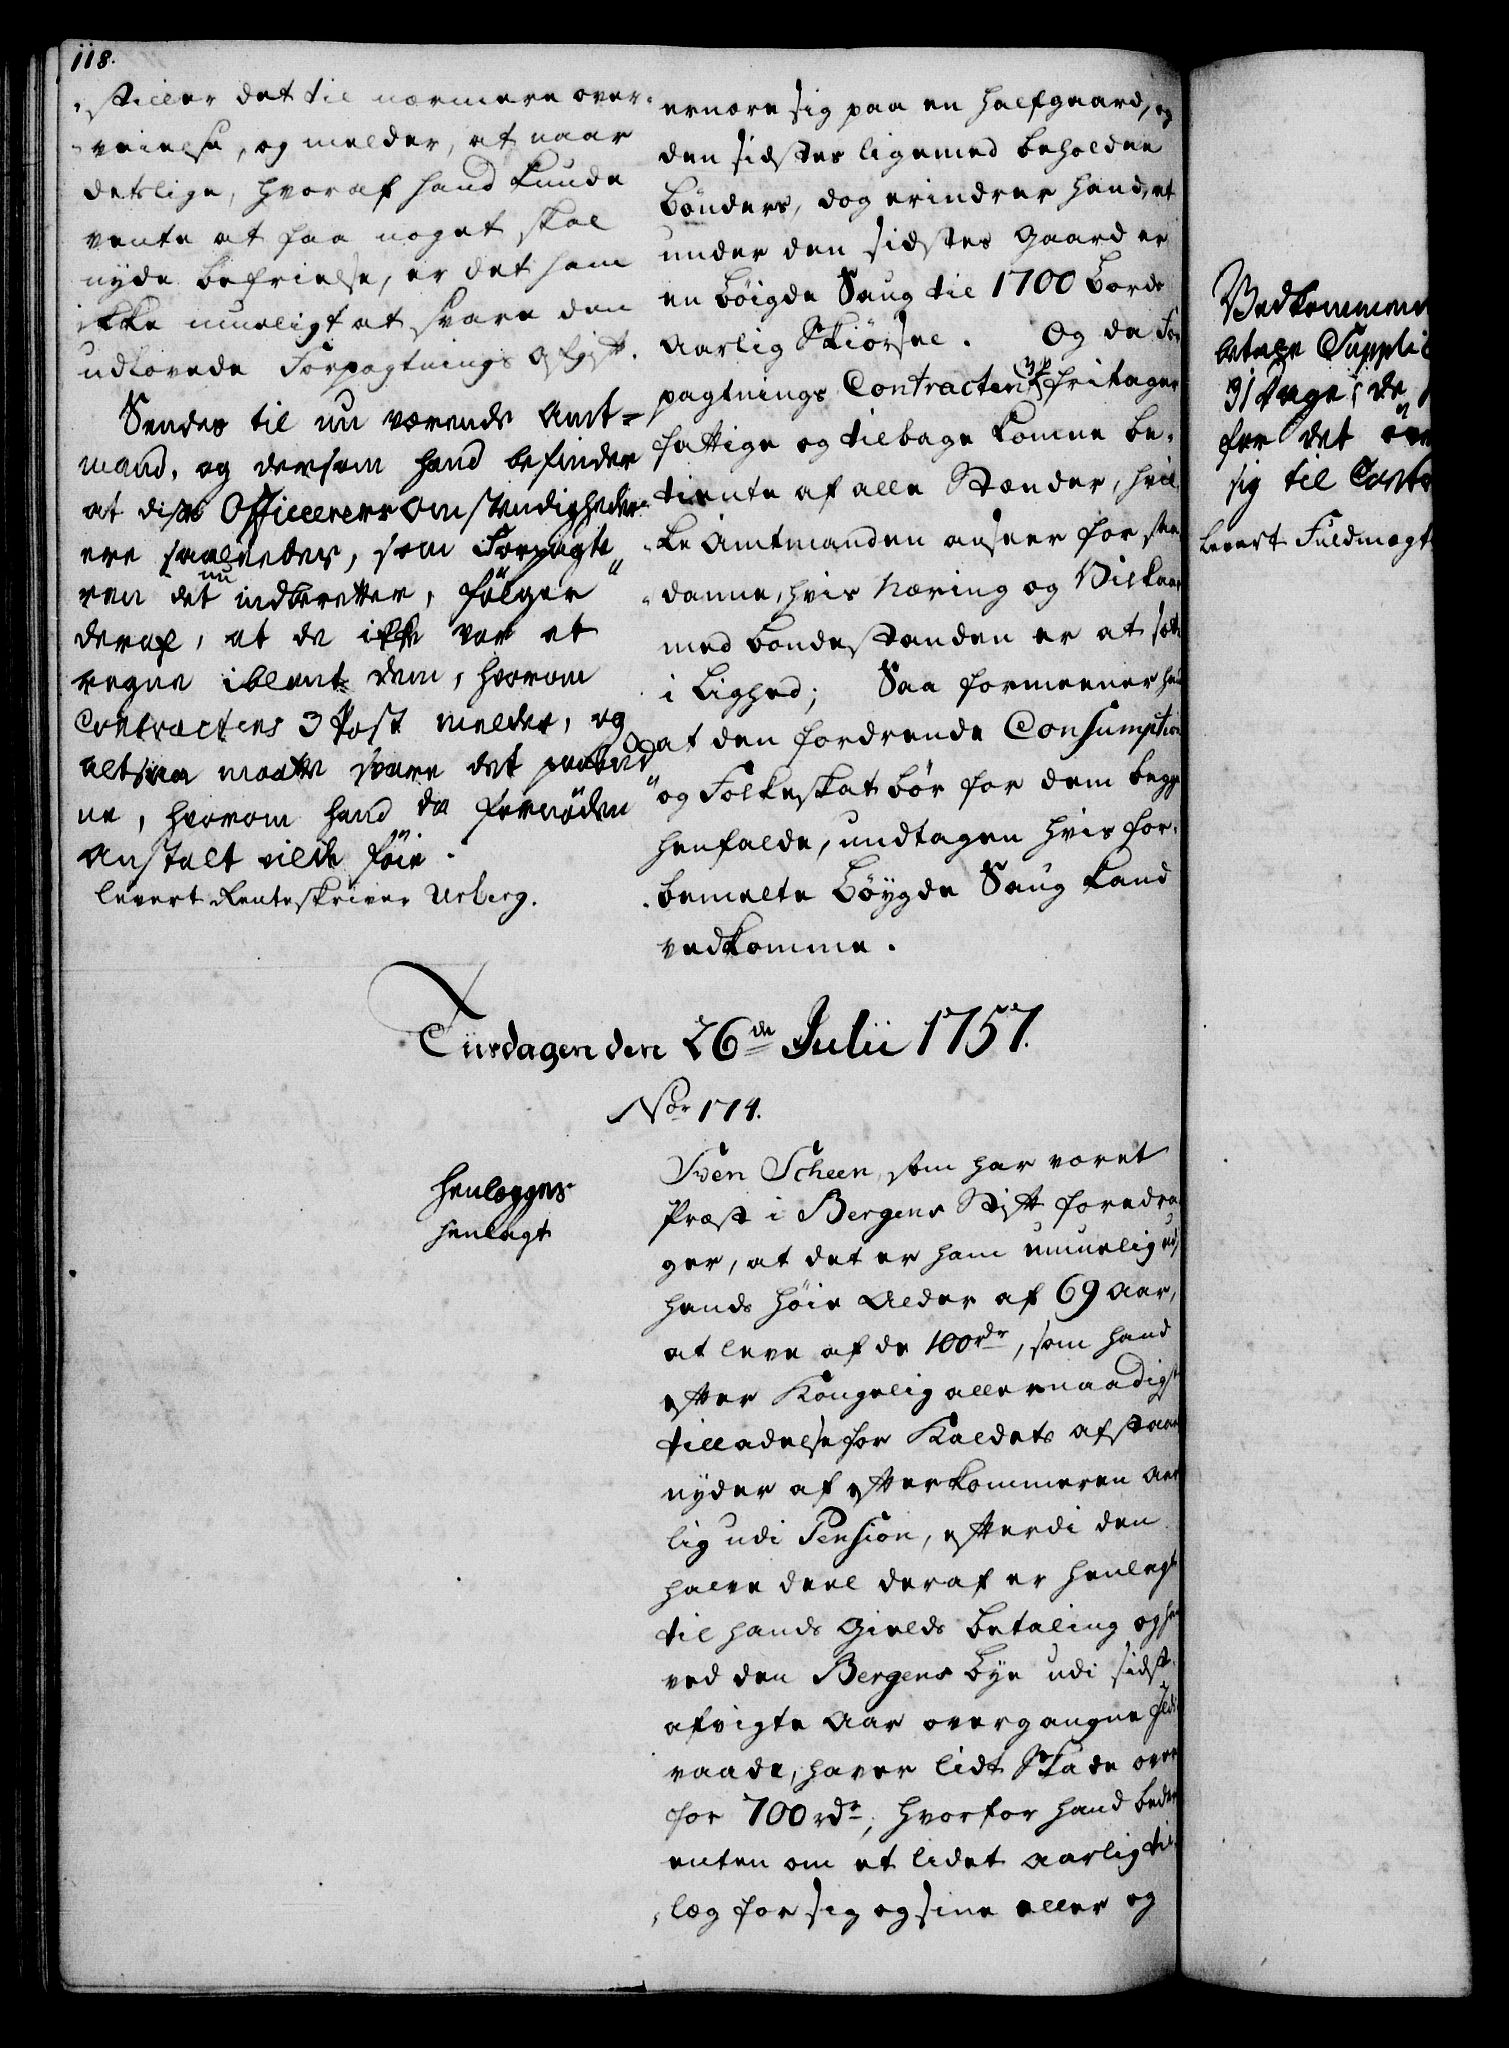 118.
stiller det til nærmere over-
veielse, og melder, at naar
detslige, hvoraf hand kunde
vente at faa noget skal
nyde befrielse, er det ham
ikke mueligt at svare den
udlovede Forpagtnings Afgift.
Sendes til nu værende Amt-
mand, og dersom hand befinder
at disse Officerers Omstendigheder
ere saaledes, som Forpagte-
ren det nu indberetter, følger
deraf, at de ikke var at
regne iblant dem, hvorom
Contractens 3 Post melder, og
altsaa maatte svare det paabud
ne, hvorom hand da fornøden
Anstalt vilde føie.
levert Renteskriver Urberg.
ernære sig paa en halfgaard, og
den sidstes ligemed beholdne
Bønders, dog erindrer hand, at
under den sidstes Gaard er
en Bøigde Saug til 1700 Bords
Aarlig Skiørsel. Og da For
pagtnings Contracten 3 P fritager
fattige og tilbage komne be-
tiente af alle Stænder, hvil
ke Amtmanden anseer for saa
danne, hvis Næring og Vilkaar
med bondestanden er at sætte
i Lighed; Saa formeener hand
at den fordrende Consumption
og Folkeskat bør for dem begge
henfalde, undtagen hvis for-
bemelte Bøygde Saug kand
vedkomme.
Tiirsdagen den 26de Julii 1757.
Nor 174.
Henlegges
henlagt
Sven Scheen, som har været
Præst i Bergens Stift foredra
ger, at det er ham umuelig udi
hands høie Alder af 69 Aar,
at leve af de 100 rdr, som hand
efter Kongelig allernaadigst
tilladelse for Kaldets afstaae
nyder af efterkommeren Aar
lig udi Pension, efterdi den
halve deel deraf er henlagt
til hands Gields betaling og hand
ved den Bergens Bye udi sidst
afvigte Aar overgangne Ilds
vaade, haver lidt Skade over
for 700 rdr; hvorfor hand beder
enten om et lidet aarlig til-
læg for sig og sine eller og
Vedkommend
betale Supplic
sig til
levert Fuldmægt